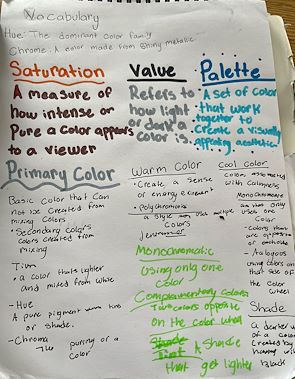 Vocabulary
Hue: The dominant color family
Chrome: A color made from shiny metallic
Saturation
A measure of
how intense or
Pure a color appears
to a viewer
Value
Refers to
how light
or dark a
color is.
Palette
A set of color
that work
together to
create a visually
appealing aesthetic
Primary Color
Basic color that can
not be created from
mixing colors
• Secondary colors
colors created from
mixing
• a color that's lighter
and mixed from white
- Hue
A pure pigment
or shade.
- Chroma
The purity of a
color
Warm Color
• Create a sense
of energy
• Polychromatic
a style use multiple
colors
Monochromatic
using only one
color
Complementary Colors
Two colors opposite
on the color wheel
Shade
that get lighter
Cool Color
colors associated
with calmness
Monochromatic
only
uses one
color
- Colors that
are opposite
- Analogous
using colors on
that side of
the color
wheel
Shade
a darker
of a color
created by
black